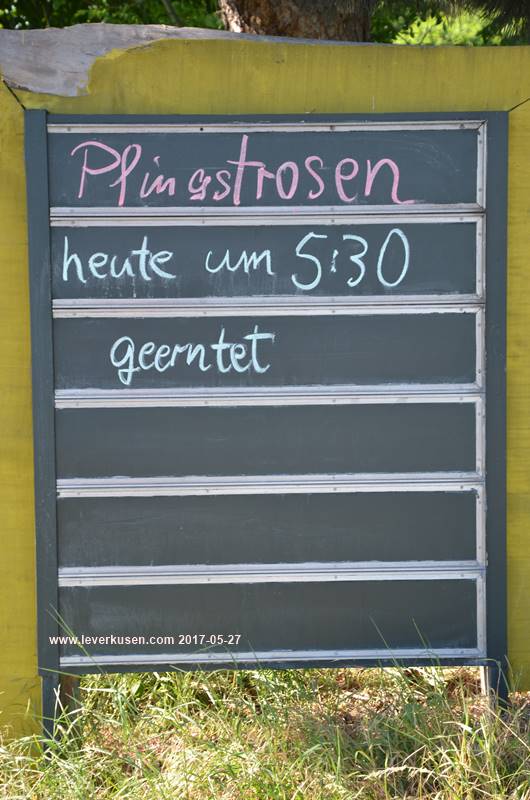 Pfingstrosen
heute um 5:30
geerntet
www.leverkusen.com 2017-05-27